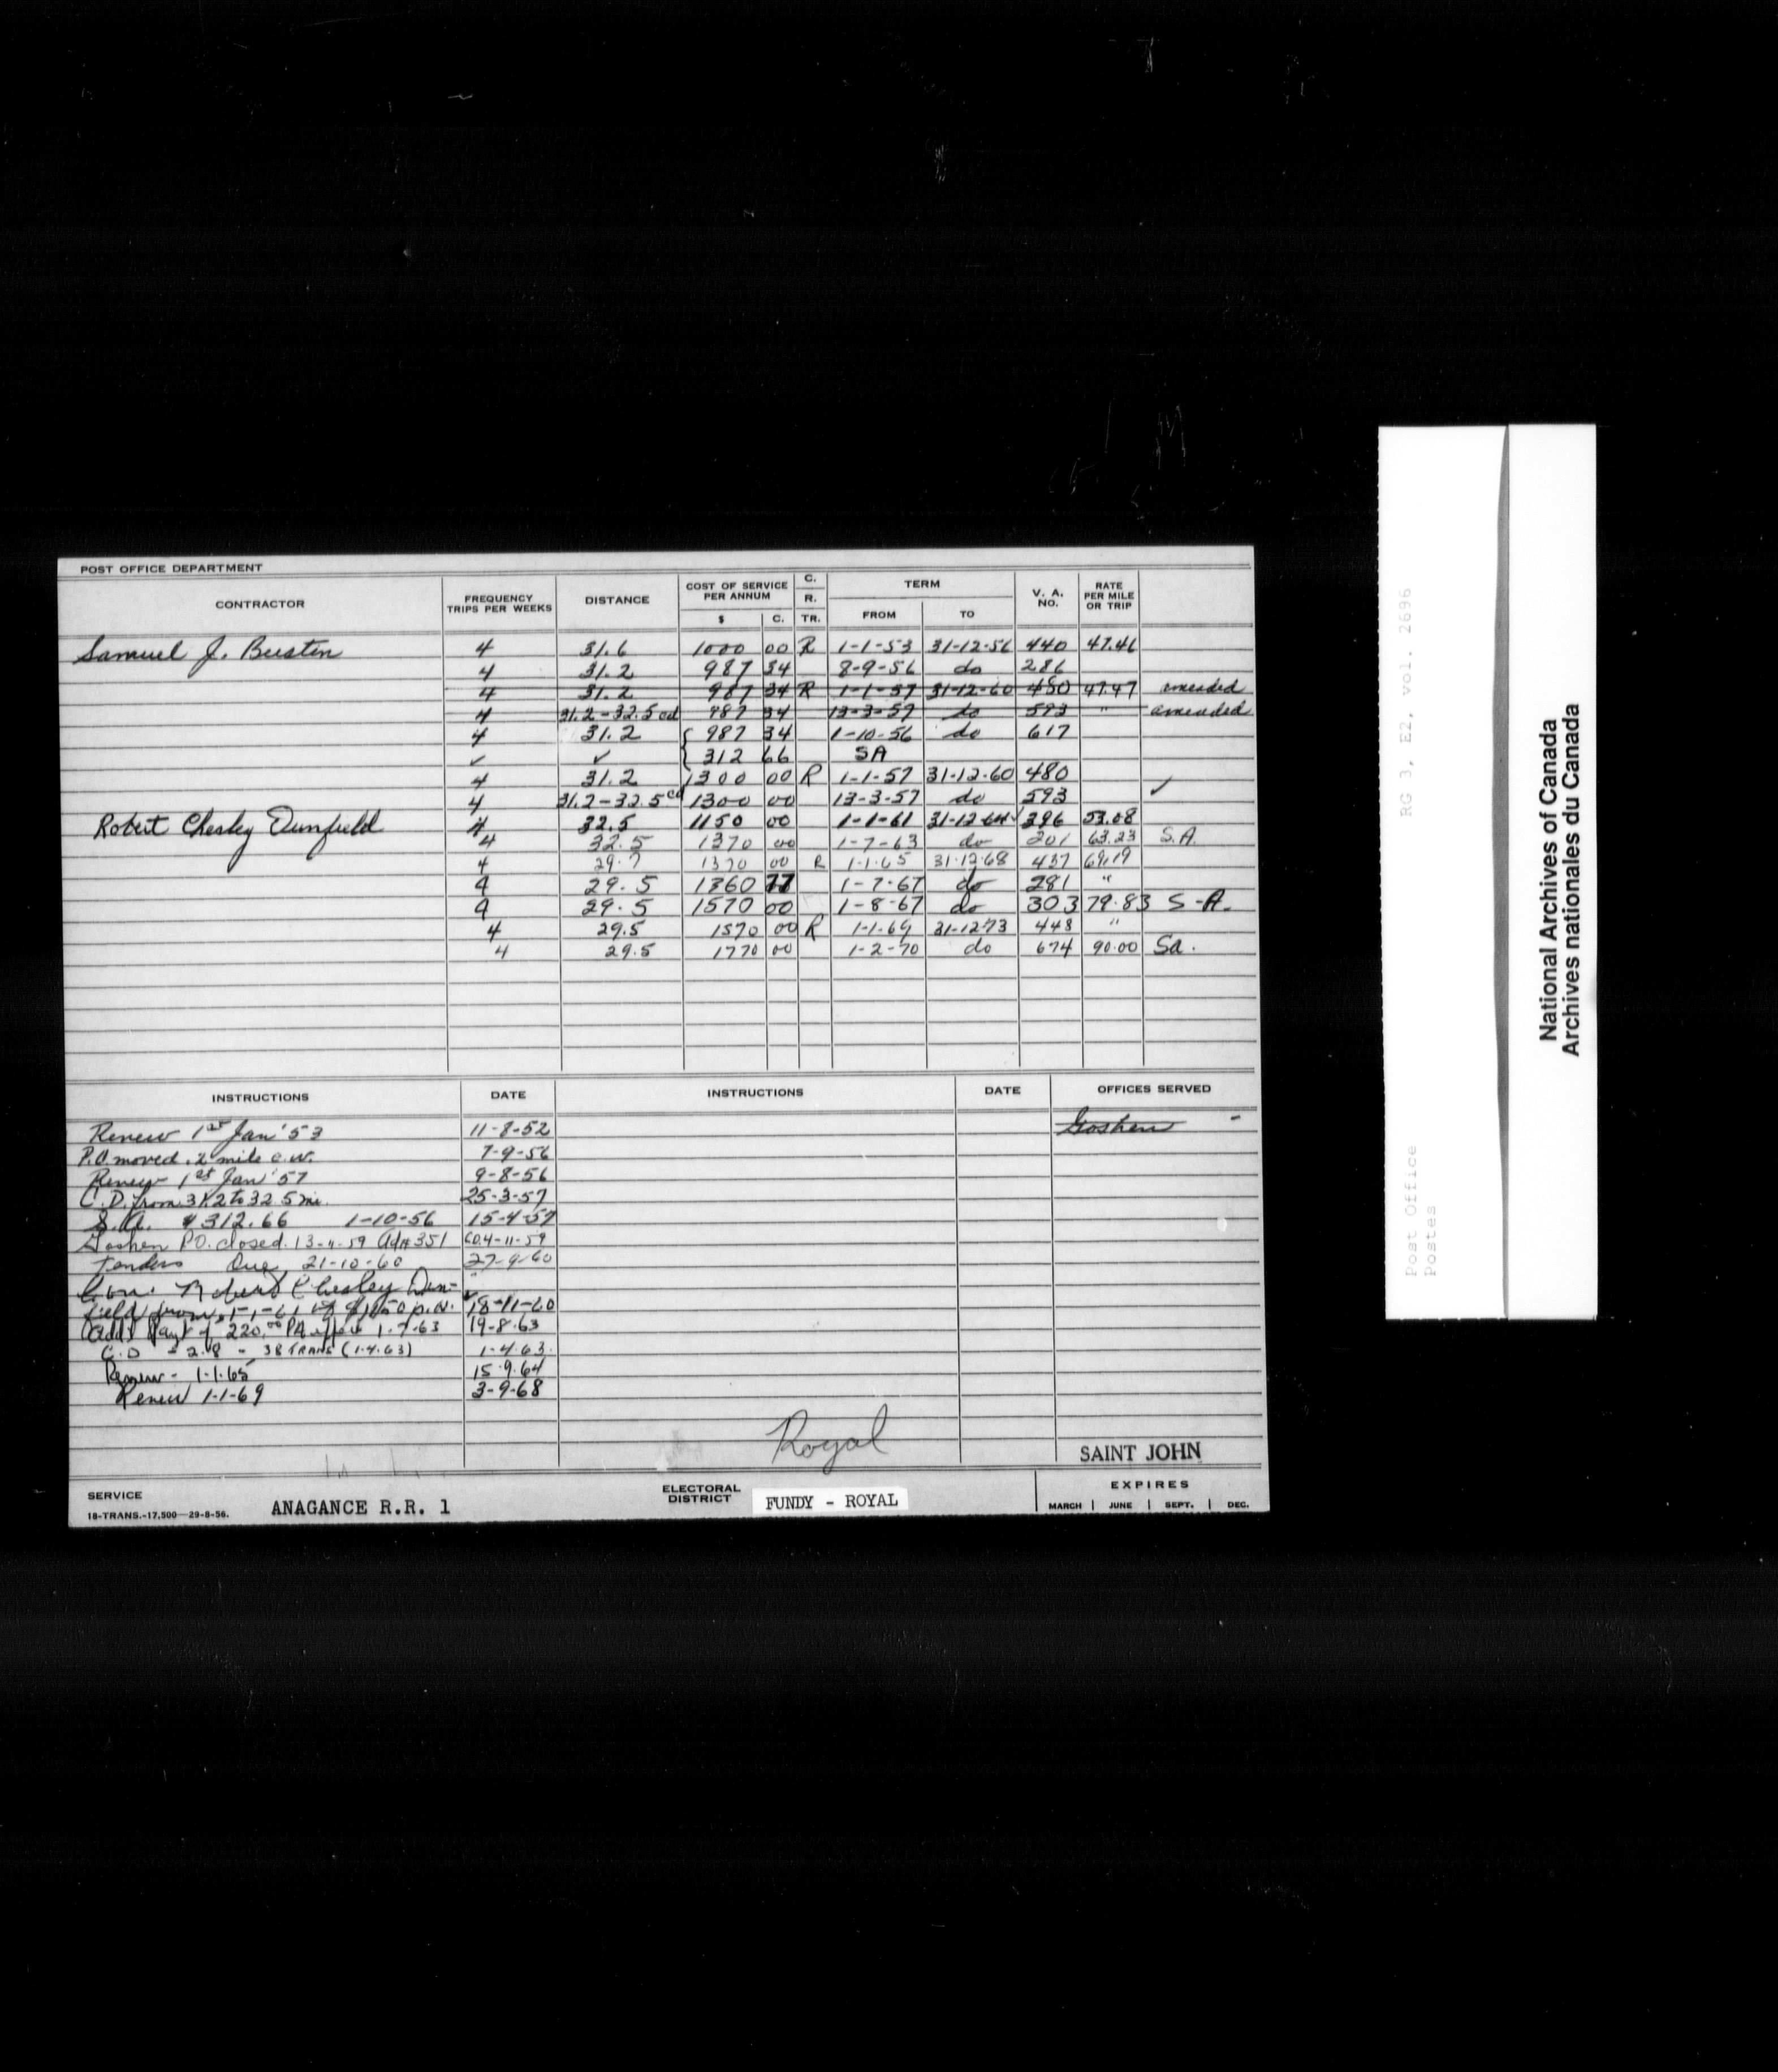 POST OFFICE DEPARTMENT
CONTRACTOR FREQUENCY TRIPS PER WEEKS DISTANCE COST OF SERVICE PER ANNUM $ C. C. R. TR. TERM FROM TO V. A. NO. RATE PER MILE OR TRIP
Samuel J. Bustin 4 31.6 1000 00 R 1-1-53 31-12-56 440 47.46
4 31.2 987 34 8-9-56 do 286
4 31.2 987 34 R 1-1-57 31-12-60 480 47.47 amended
4 31.2-32.5 cd 987 34 13-3-57 do 593 " amended
4 31.2 987 34 1-10-56 do 617
✓ ✓ 312 66 SA
4 31.2 1300 00 R 1-1-57 31-12-60 480
4 31.2-32.5 cd 1300 00 13-3-57 do 593 ✓
Robert Chesley Dunfield 4 32.5 1150 00 1-1-61 31-12-64 396 53.08
4 32.5 1370 00 1-7-63 do 201 63.23 S.A.
4 29.7 1370 00 R 1.1.65 31.12.68 437 69.19
4 29.5 1360 77 1-7-67 do 281 "
4 29.5 1570 00 1-8-67 do 303 79.83 S-A.
4 29.5 1570 00 R 1-1-69 31-12-73 448 "
4 29.5 1770 00 1-2-70 do 674 90.00 Sa.
INSTRUCTIONS DATE INSTRUCTIONS DATE OFFICES SERVED
Renew 1st Jan '53 11-8-52 Goshen -
P.O. moved .2 mile c.w. 7-9-56
Renew 1st Jan '57 9-8-56
C.D. from 31.2 to 32.5 mi. 25-3-57
S.A. $312.66 1-10-56 15-4-57
Goshen P.O. closed. 13-11-59 Ad# 351 CO.4-11-59
Tenders Due 21-10-60 27-9-60
Con. Robert Chesley Dun-
field from 1-1-61 @ $1150 p.a. 18-11-60
Add'l Pay't of 220.00 PA effect 1-7-63 19-8-63
C.D - 2.8 - 38 TRANS (1.4.63) 1-4.63.
Renew - 1.1.65 15.9.64
Renew 1-1-69 3-9-68
Royal
SAINT JOHN
SERVICE ANAGANCE R.R. 1 ELECTORAL DISTRICT FUNDY - ROYAL EXPIRES
18-TRANS.-17,500—29-8-56. MARCH | JUNE | SEPT. | DEC.
RG 3, E2, vol. 2696
Post Office
Postes
National Archives of Canada
Archives nationales du Canada